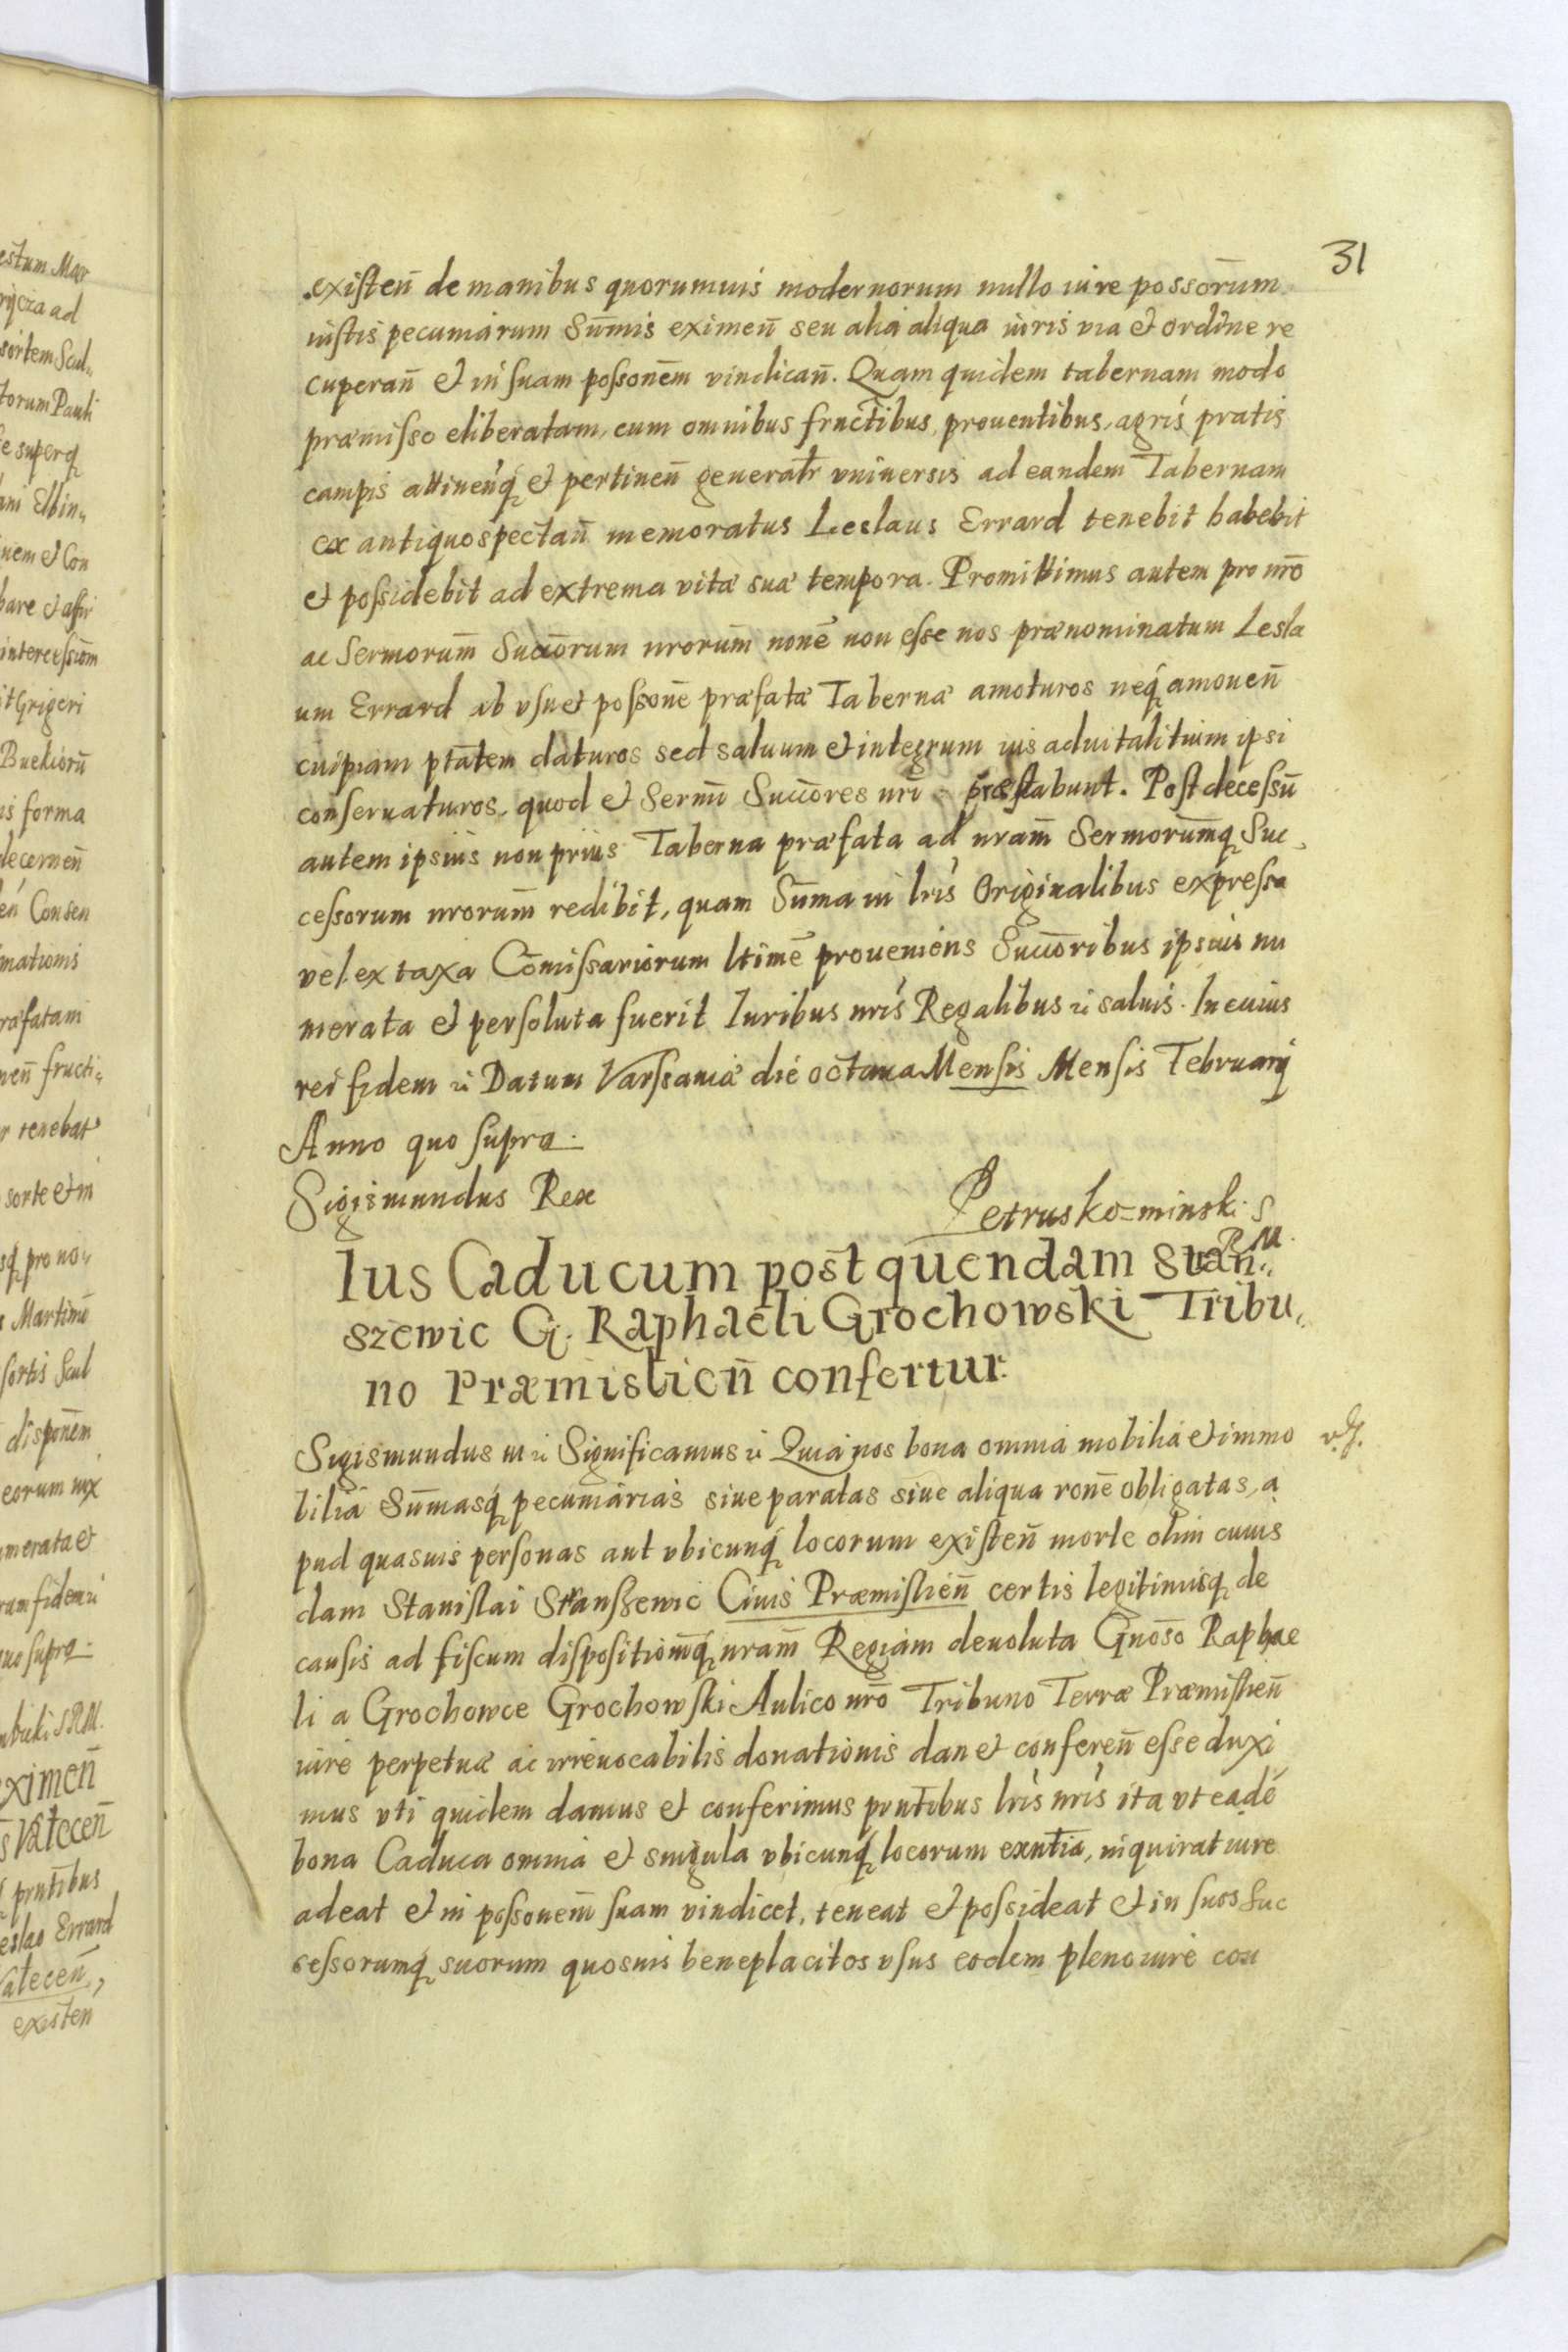 31
existeñ de manibus quorumuis modernorum nullo iure possorum̄
iustis pecuniarum Sum̄is eximeñ seu alia aliqua iuris via et ordine re
cuperañ et in suam possonem̄ vindicañ. Quam quidem tabernam modo
præmisso eliberatam, cum omnibus fructibus, prouentibus, agris pratis
campis attineñq et pertineñ generalr̄ vniuersis ad eandem Tabernam
ex antiquo spectañ memoratus Leslaus Errard tenebit habebit
et possidebit ad extrema vitæ suæ tempora. Promittimus autem pro nrō
ac Sermorum̄ Succōrum nrorum̄ nonē non esse nos prænominatum Lesla
um Errard ab vsu et possonē præfatæ Tabernæ amoturos neq amoueñ
cuipiam ptātem daturos sed saluum et integrum ius aduitalitium ipsi
conseruaturos, quod et Sermī Succōres nrī præstabunt. Post decessū
autem ipsius non prius Taberna præfata ad nram̄ Sermorum̄q Suc„
cessorum nrorum̄ redibit, quam Sūma in lrīs Originalibus expressa
vel ex taxa Com̄issariorum ltimē proueniens Succōribus ipsius nu
merata et persoluta fuerit Iuribus nrīs Regalibus etc saluis. In cuius
rei fidem etc Datum Varsauiæ die octaua Mensis Mensis Februarij
Anno quo supra.
Sigismundus Rex
Petrus ko=minski S
RM.
Ius Caducum post quendam Stan„
szewic G. Raphaeli Grochowski Tribu„
no Præmislieñ confertur.
Sigismundus III etc Significamus etc Quia nos bona omnia mobilia et immo
bilia Sum̄asq pecuniarias siue paratas siue aliqua ronē obligatas, a
pud quasuis personas aut vbicunq locorum existeñ morte olim cuius
dam Stanislai Stanszewic Ciuis Præmislieñ certis legitimisq de
causis ad fiscum dispositionem̄q nram̄ Regiam deuoluta Gnoso Raphae
li a Grochowce Grochowski Aulico nrō Tribuno Terræ Præmislieñ
iure perpetuæ ac irreuocabilis donationis dañ et confereñ esse duxi
mus vti quidem damus et conferimus pntibus lrīs nrīs ita vt eadē
bona Caduca omnia et singula vbicunq locorum exntia, inquirat iure
adeat et in possonem̄ suam vindicet, teneat et possideat et in suos Suc
cessorumq suorum quosuis beneplacitos vsus eodem pleno iure con